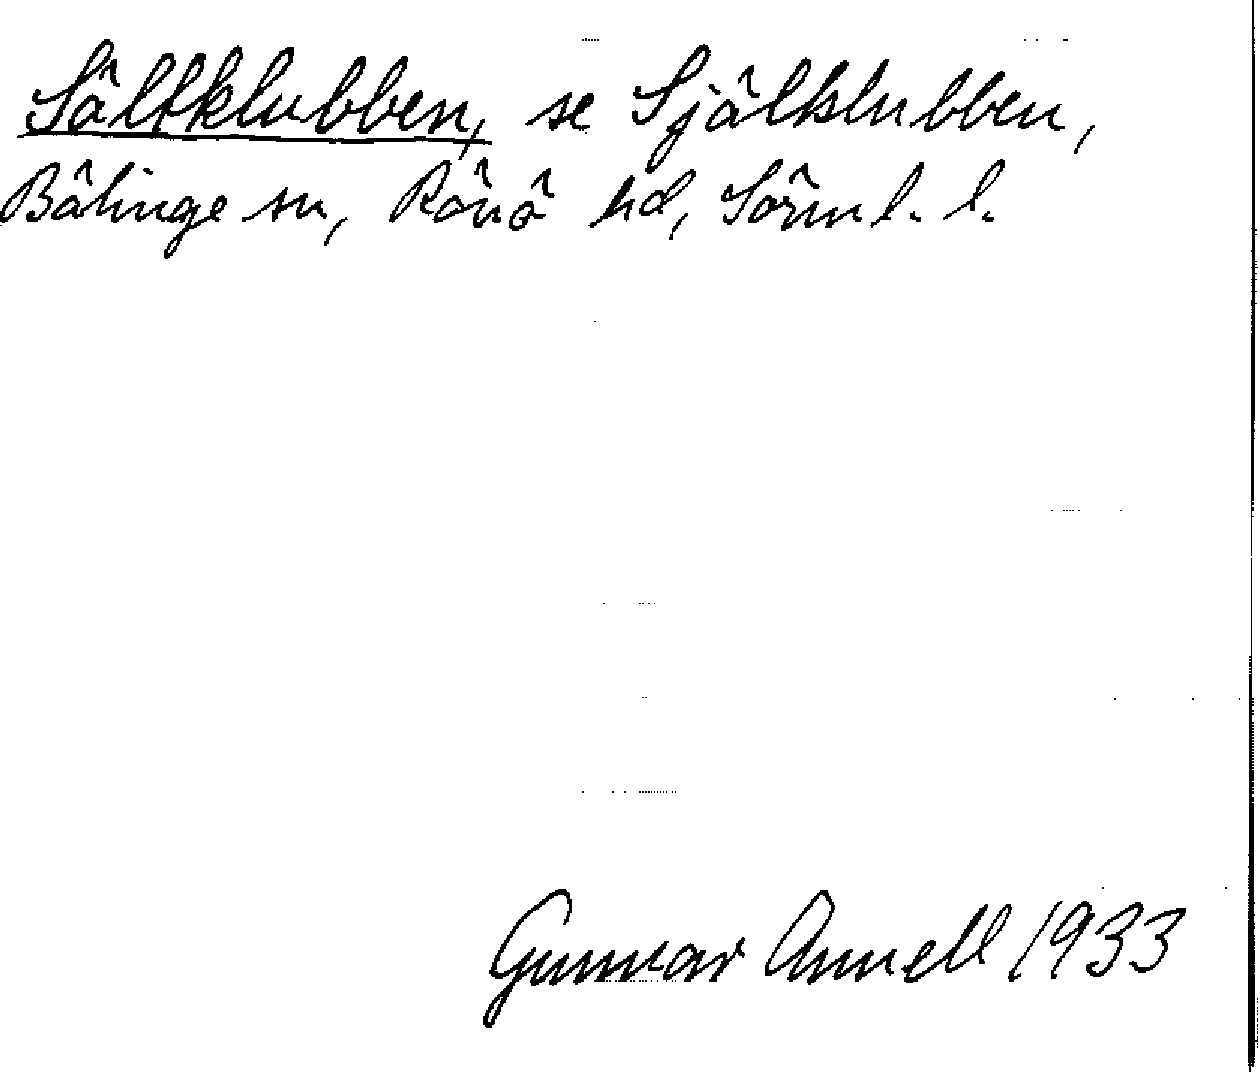 Sältklubben, se Själklubben,
Bälinge sn, Rönö hd, Sörml. l.
Gunnar Annell 1933